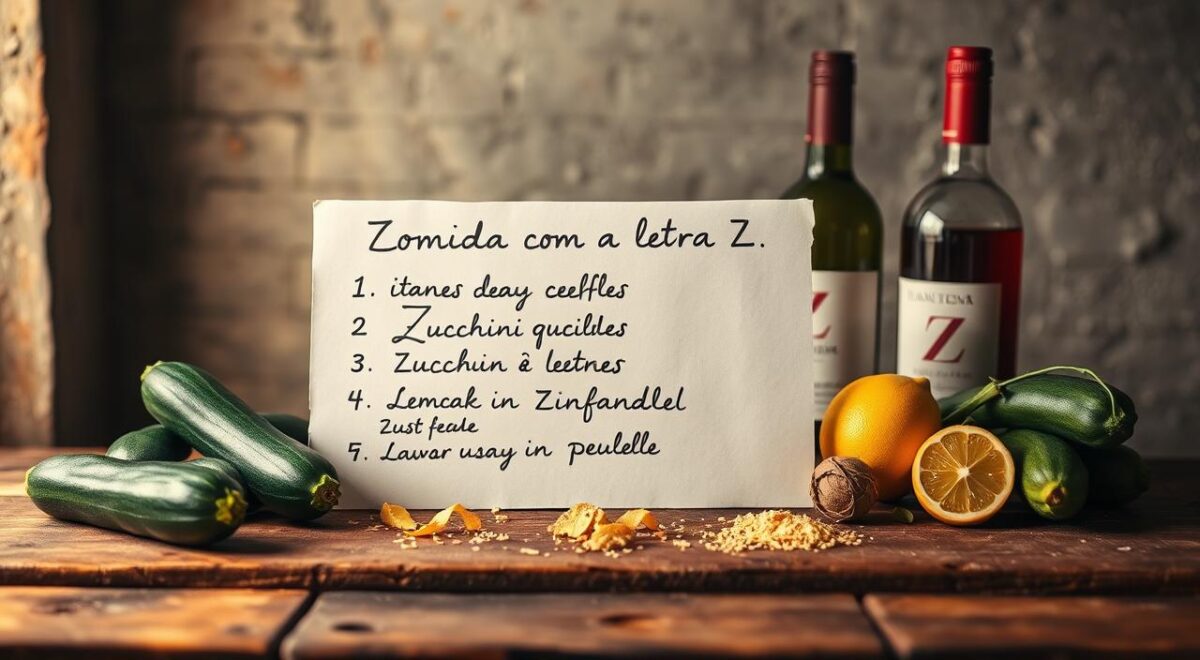 Zomida com a letra Z.
1. itanes deay ceelfles
2 Zucchini qucildes
3. Zucchuin ê leetnes
4. Lemcak in Zinfandlel
Zust feale
5. Lawar usay in peulelle
Z
Z